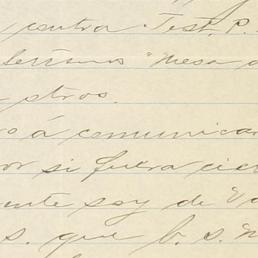 contra Test. P.
Terreno "Mesa
otros.
á comunicar
or si fuera cier
ente soy de Vd
s. que b. s. m